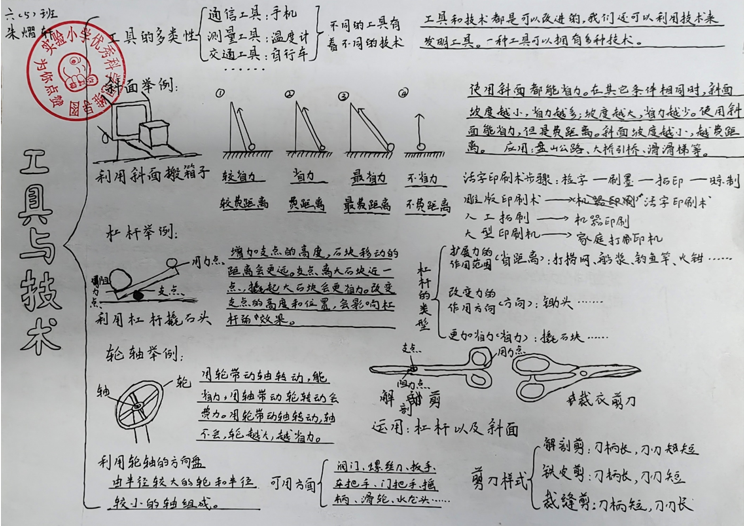 六(5)班
工具与技术
工具的多样性
通信工具:手机
测量工具:温度计
交通工具:自行车
……
不同的工具有
着不同的技术
工具和技术都是可以改进的,我们还可以利用技术来
发明工具。一种工具可以拥有多种技术。
斜面举例:
利用斜面搬箱子
① ② ③ ④
较省力 省力 最省力 不省力
较费距离 费距离 最费距离 不费距离
使用斜面都能省力。在其它条件相同时,斜面
坡度越小,省力越多;坡度越大,省力越少。使用斜
面能省力,但是费距离。斜面坡度越小,越费距
离。 应用:盘山公路、大桥引桥、滑滑梯等。
活字印刷术步骤:检字—刷墨—拓印—晾制
雕版印刷术→活字印刷术
人工拓刷→机器印刷
大型印刷机→家庭打印机
杠杆举例:
用力点
支点
阻力点
利用杠杆撬石头
增加支点的高度,石块移动的
距离会更远。支点离大石块近一
点,撬起大石块会更省力。改变
支点的高度和位置,会影响杠
杆的效果。
杠杆的类型
扩展力的
作用范围(省距离):打捞网、船桨、钓鱼竿、火钳……
改变力的
作用方向(方向):锄头……
更加省力(省力):撬石块……
轮轴举例:
轴
轮
利用轮轴的方向盘
由半径较大的轮和半径
较小的轴组成。
用轮带动轴转动,能
省力。用轴带动轮转动会
费力。用轮带动轴转动,轴
不变,轮越大,越省力。
可用方面
阀门、螺丝刀、扳手、
车把手、门把手、摇
柄、滑轮、水龙头……
支点
用力点
阻力点
解剖剪
裁衣剪刀
运用:杠杆以及斜面
剪刀样式
解剖剪:刀柄长,刀刃短短
铁皮剪:刀柄长,刀刃短
裁缝剪:刀柄短,刀刃长